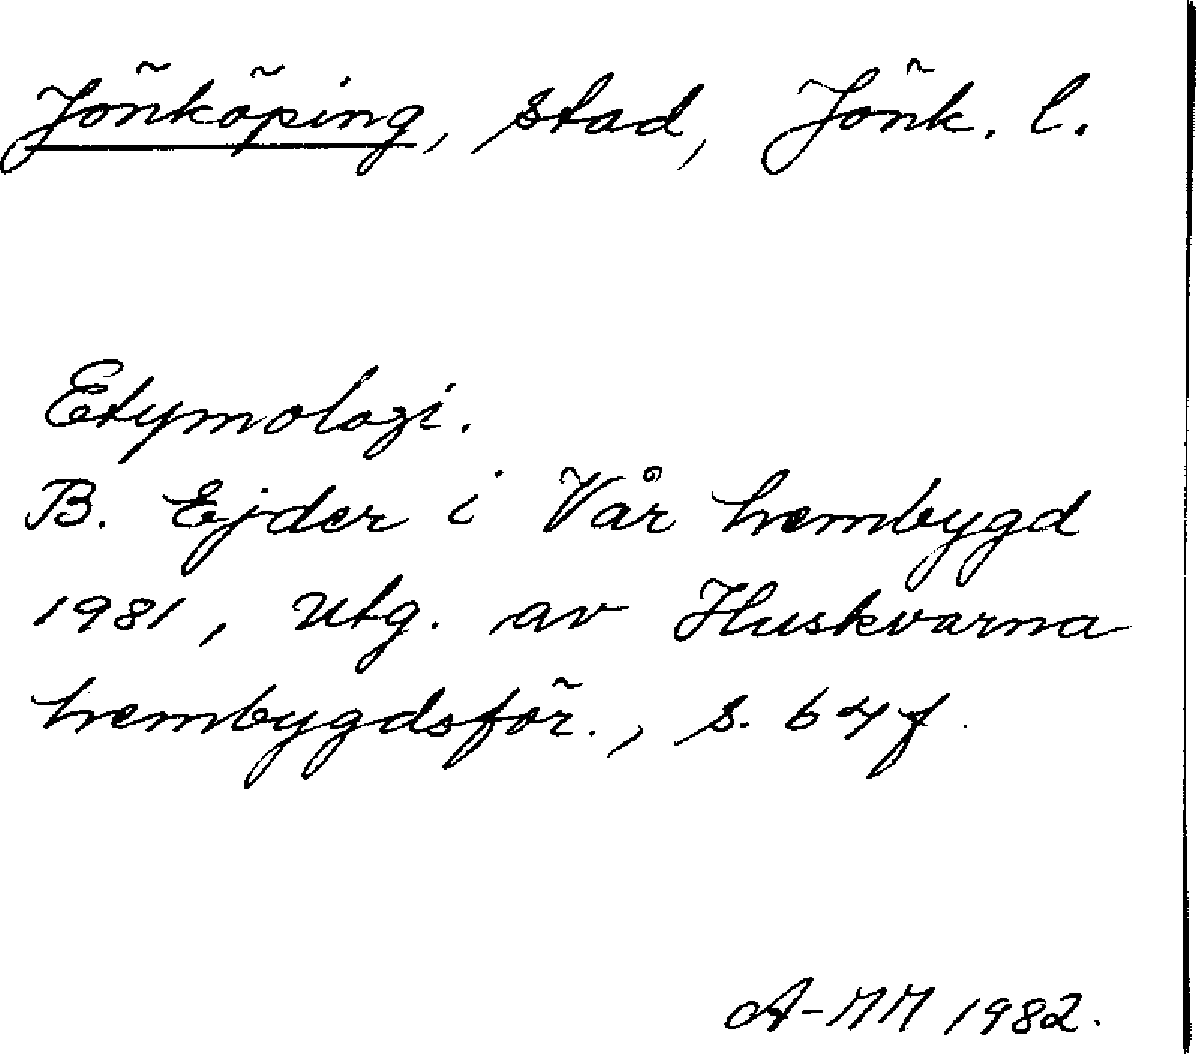 Jönköping, stad, Jönk. l.
Etymologi.
B. Ejder i Vår hembygd
1981, utg. av Huskvarna
hembygdsför., s. 64f.
A-MM 1982.